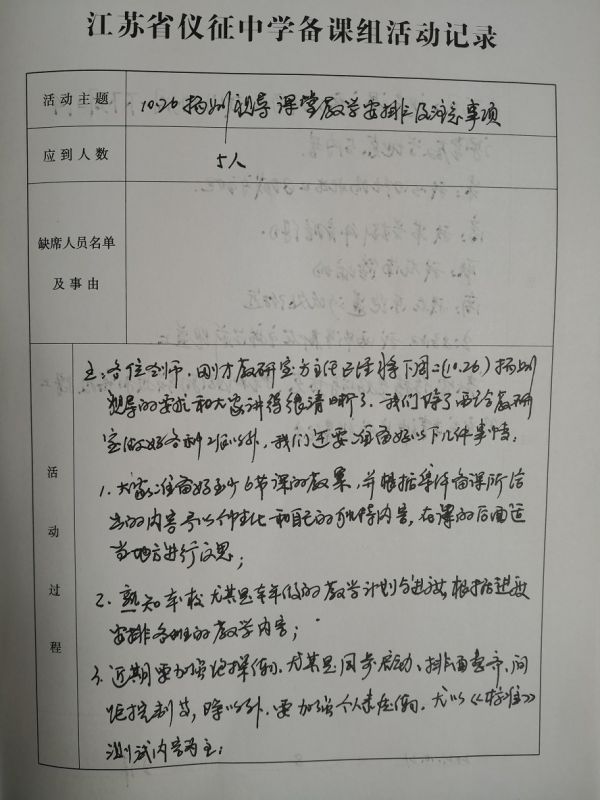 江苏省仪征中学备课组活动记录
活动主题
10.26 扬州视导课堂教学安排及注意事项
应到人数
5人
缺席人员名单
及事由
活动过程
主:各位老师,刚才教研室方主任已经将下周二(10.26)扬州
视导的要求和大家讲得很清晰了,我们除了配合教研
室做好各种工作以外,我们还要准备好以下几件事情:
1. 大家准备好至少6节课的教案,并根据集体备课所给
出的内容予以个性化和自己的独特内容,在课的后面适
当地方进行反思;
2. 熟知本校尤其是本年级的教学计划与进度,根据进度
安排各班的教学内容;
3. 近期要加强课操,尤其是同步启动、排面整齐、间
距控制等,除此以外,要加强个人素质,尤以《标准》
测试内容为主;